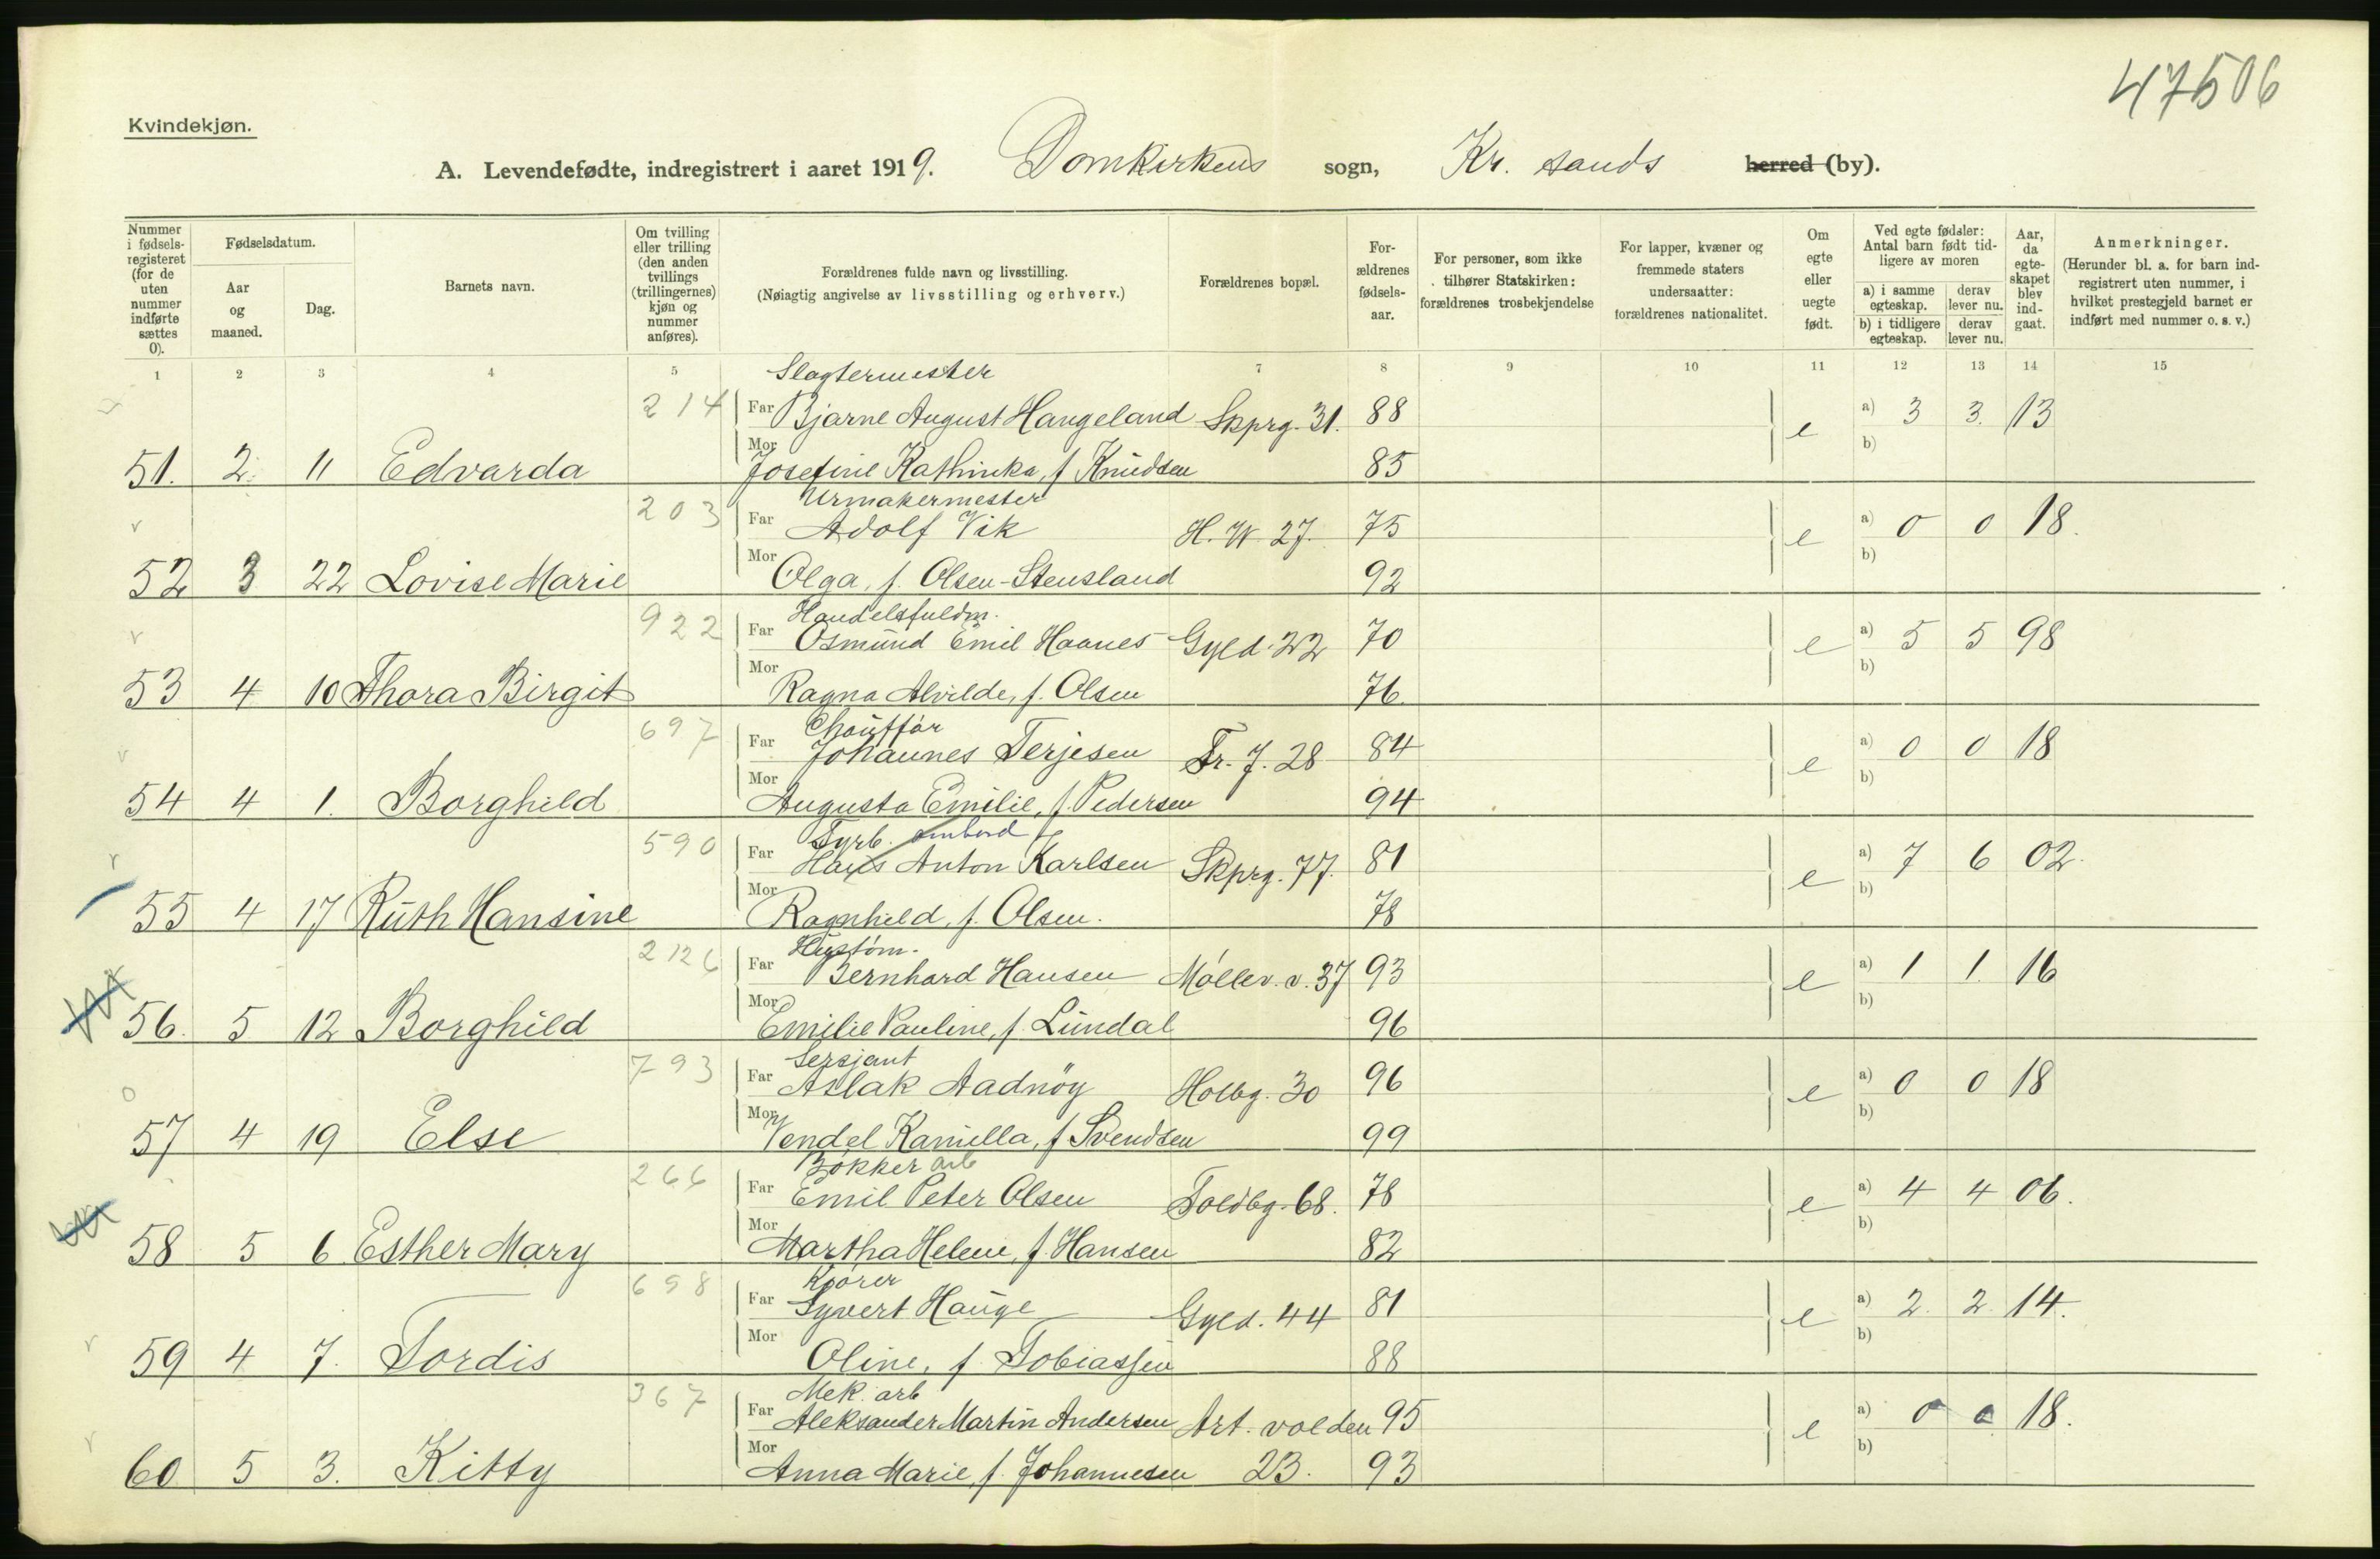 47506
Kvindekjøn.
A. Levendefødte, indregistrert i aaret 1919. Domkirkens sogn, Kr. sands herred (by).
Nummer i fødselsregisteret (for de uten nummer indførte sættes 0).
Fødselsdatum.
Aar og maaned.
Dag.
Barnets navn.
Om tvilling eller trilling (den anden tvillings (trillingernes) kjøn og nummer anføres).
Forældrenes fulde navn og livsstilling.
(Nøiagtig angivelse av livsstilling og erhverv.)
Forældrenes bopæl.
Forældrenes fødselsaar.
For personer, som ikke tilhører Statskirken: forældrenes trosbekjendelse
For lapper, kvæner og fremmede staters undersaatter: forældrenes nationalitet.
Om egte eller uegte født.
Ved egte fødsler: Antal barn født tidligere av moren
a) i samme egteskap. derav lever nu.
b) i tidligere egteskap. derav lever nu.
Aar, da egteskapet blev indgaat.
Anmerkninger.
(Herunder bl. a. for barn indregistrert uten nummer, i hvilket prestegjeld barnet er indført med nummer o. s. v.)
1 2 3 4 5 7 8 9 10 11 12 13 14 15
Slagtermester
214 Far Bjarne August Hangeland Skprg. 31. 88 e a) 3 3. 13
Mor b)
51. 2. 11 Edvarda Josefine Kathinka, f Knudsen 85
Urmakermester
203 Far Adolf Vik H. W 27. 75 e a) 0 0 18.
Mor b)
52 3 22 Lovise Marie Olga, f. Olsen-Stensland 92
Handelsfuldm.
922 Far Osmund Emil Haanes Gyld. 22 70 e a) 5 5 98
Mor b)
53 4 10 Thora Birgit Ragna Alvilde, f. Olsen 76
Chauffør
697 Far Johannes Terjesen Fr. J. 28 84 e a) 0 0 18
Mor b)
54 4 1. Borghild Augusta Emilie, f. Pedersen 94
Fyrb. ombord
590 Far Hans Anton Karlsen Skprg. 77. 81 e a) 7 6 02.
Mor b)
55 4 17 Ruth Hansine Ragnhild, f. Olsen. 78
Hustøm.
2126 Far Bernhard Hansen Møllev. v. 37 93 e a) 1 1. 16
Mor b)
56. 5 12 Borghild Emilie Pauline, f. Lundal 96
Sersjant
793 Far Aslak Aadnöy Holbg. 30 96 e a) 0 0 18
Mor b)
57 4 19 Else Vendel Kamilla, f Svendsen 99
Bøkker arb
266 Far Emil Peter Olsen Toldbg. 68. 78 e a) 4 4 06.
Mor b)
58 5 6 Esther Mary Martha Helene, f. Hansen 82
Kjører
698 Far Syvert Hauge Gyld. 44 81 e a) 2. 2. 14.
Mor b)
59 4 7. Tordis Oline, f. Tobiassen 88
Mek. arb
367 Far Aleksander Martin Andersen Art. volden 95 e a) 0 0 18.
Mor b)
60 5 3. Kitty Anna Marie, f. Johannesen 23. 93